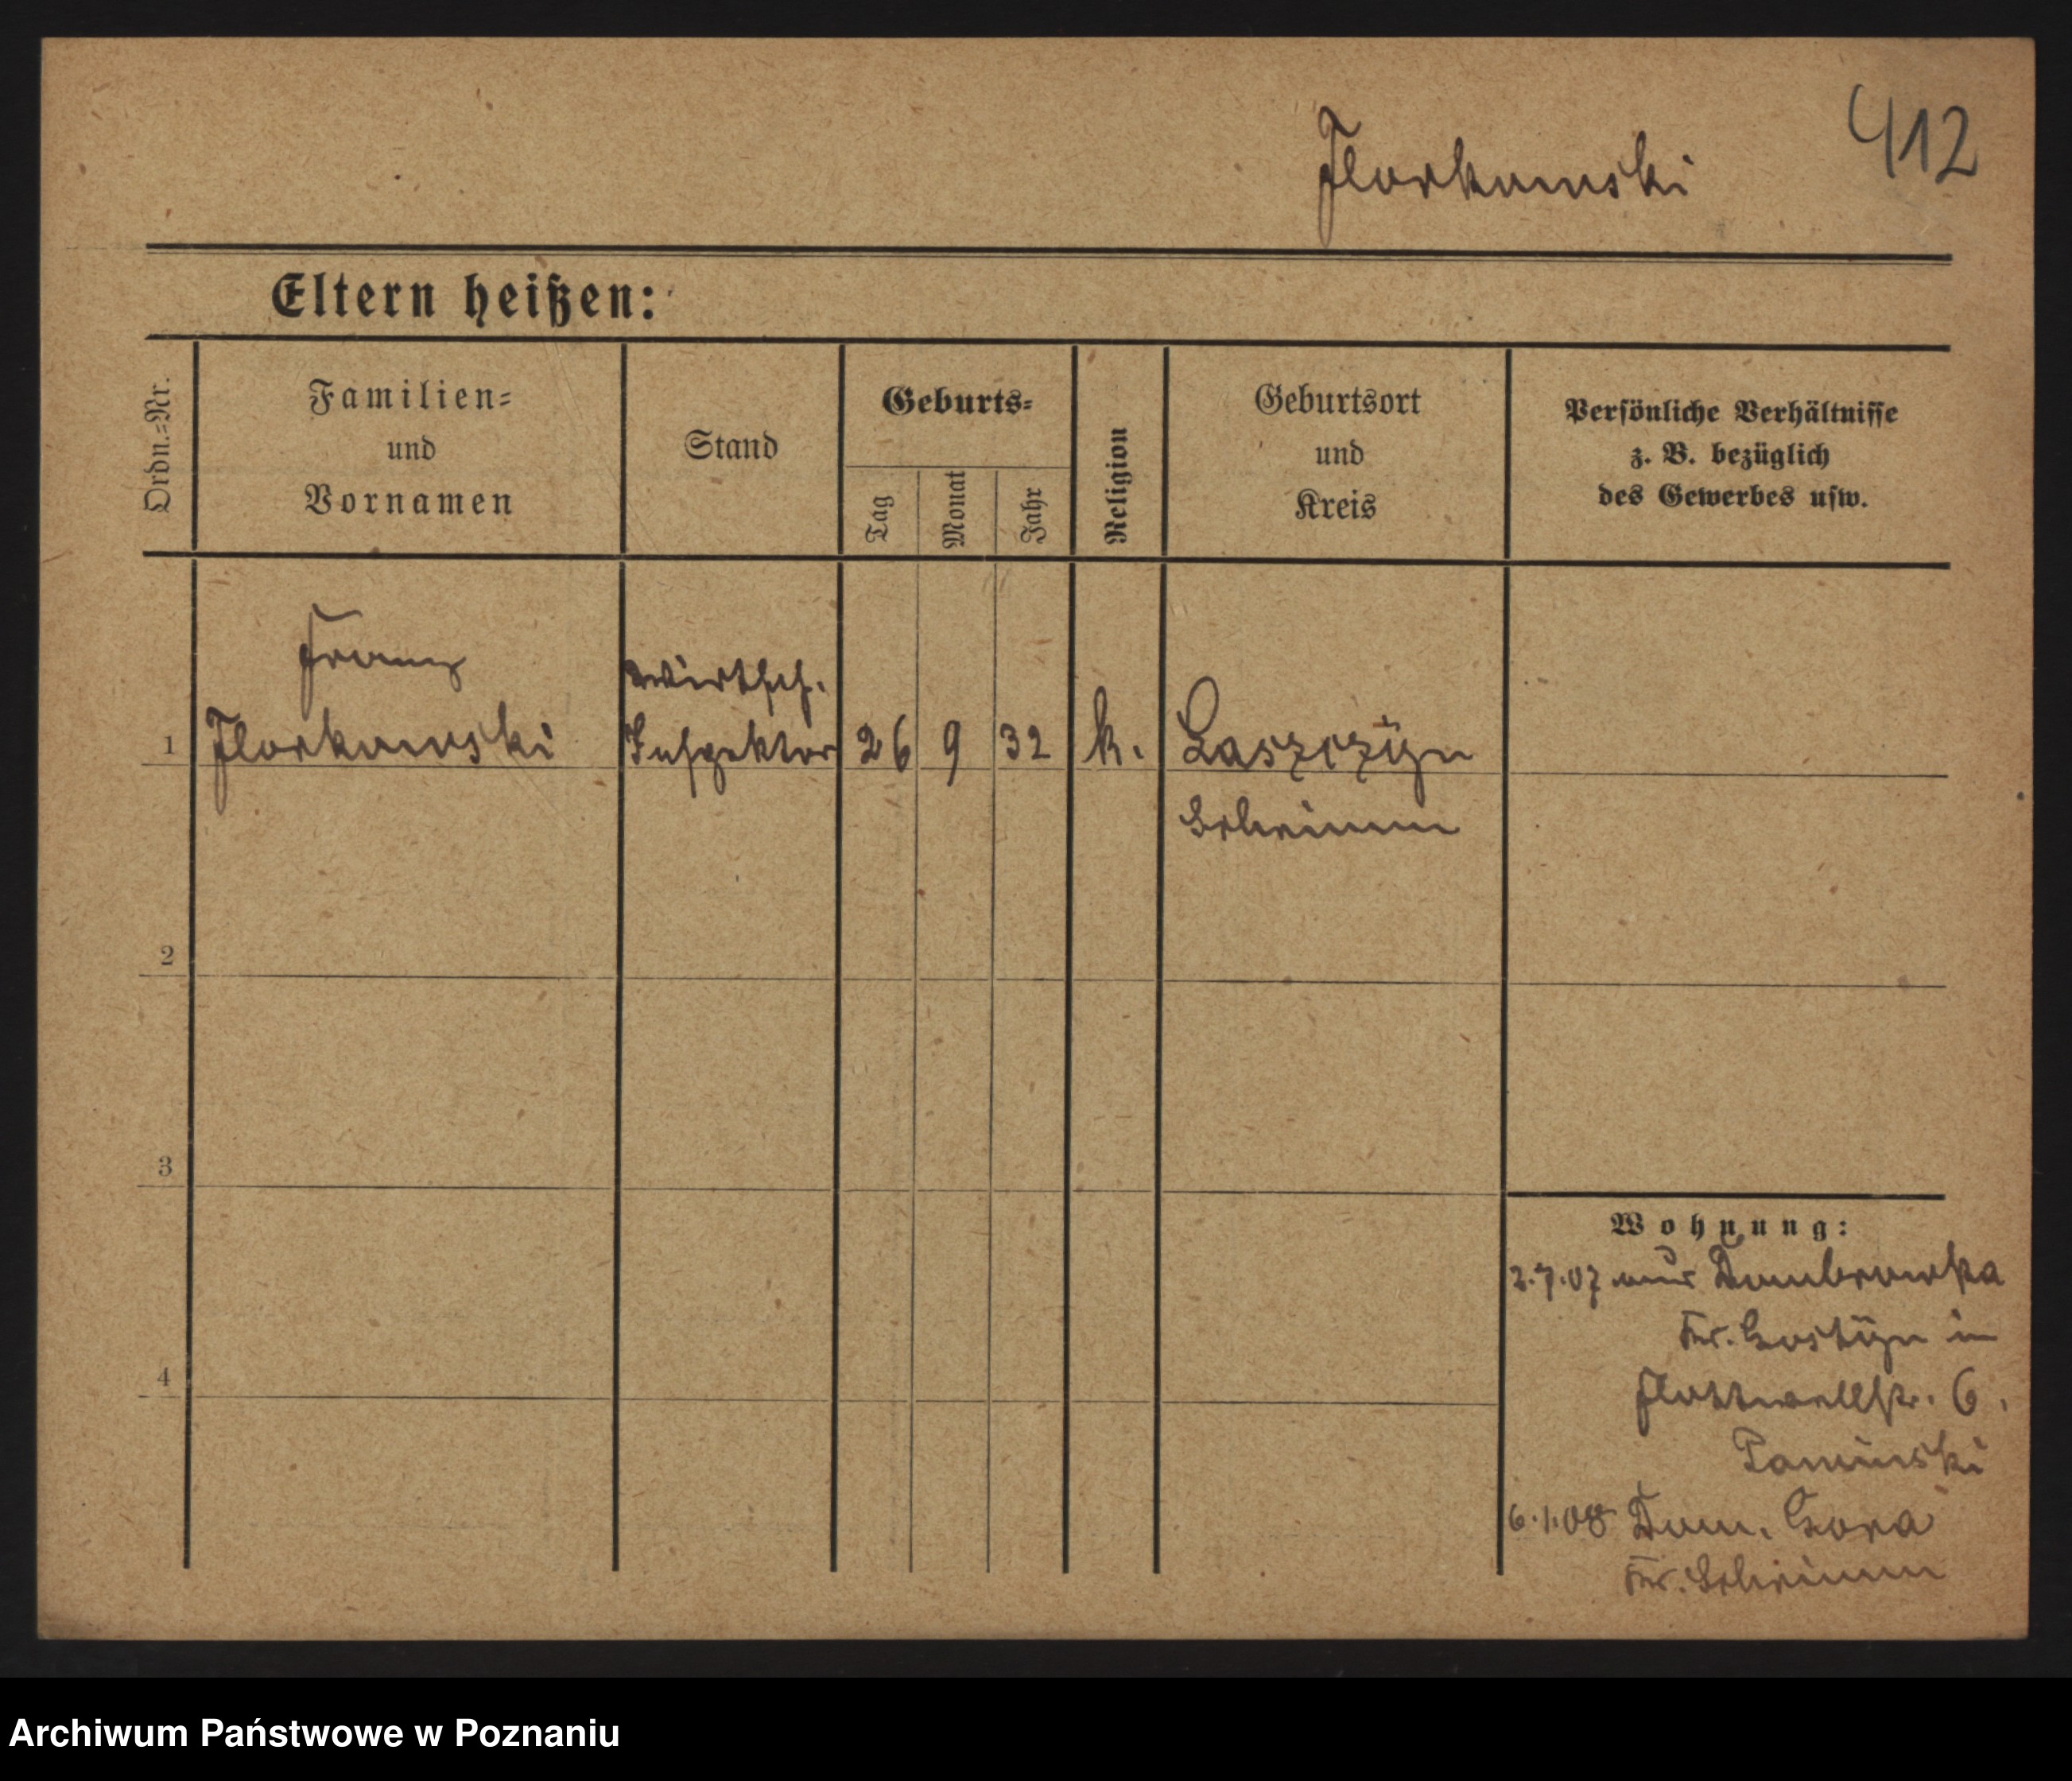 412
Florkowski
Eltern heißen:
Ordn.=Nr.
Familien=
und
Vornamen
Stand
Geburts=
Tag
Monat
Jahr
Religion
Geburtsort
und
Kreis
Persönliche Verhältnisse
z. B. bezüglich
des Gewerbes usw.
Franz
Wirtsch.
1 Florkowski Inspektor 26 9 32 k. Laszczyn
Schrimm
2
3
4
Wohnung:
2.7.07 aus Dombrowka
Kr. Gostyn in
Flottwellstr. 6.
6.1.08 Dom. Gora
Kr. Schrimm
Archiwum Państwowe w Poznaniu